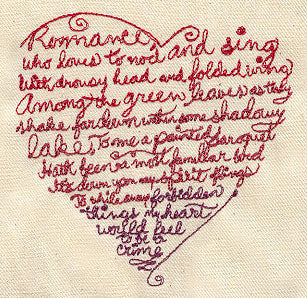 Romance,
who loves to nod and sing
With drowsy head and folded wing
Among the green leaves as they
shake far down within some shadowy
lake, To me a painted paroquet
Hath been a most familiar bird
upon my Spirit flings
To while away forbidden
things my heart
would feel
to be a
crime